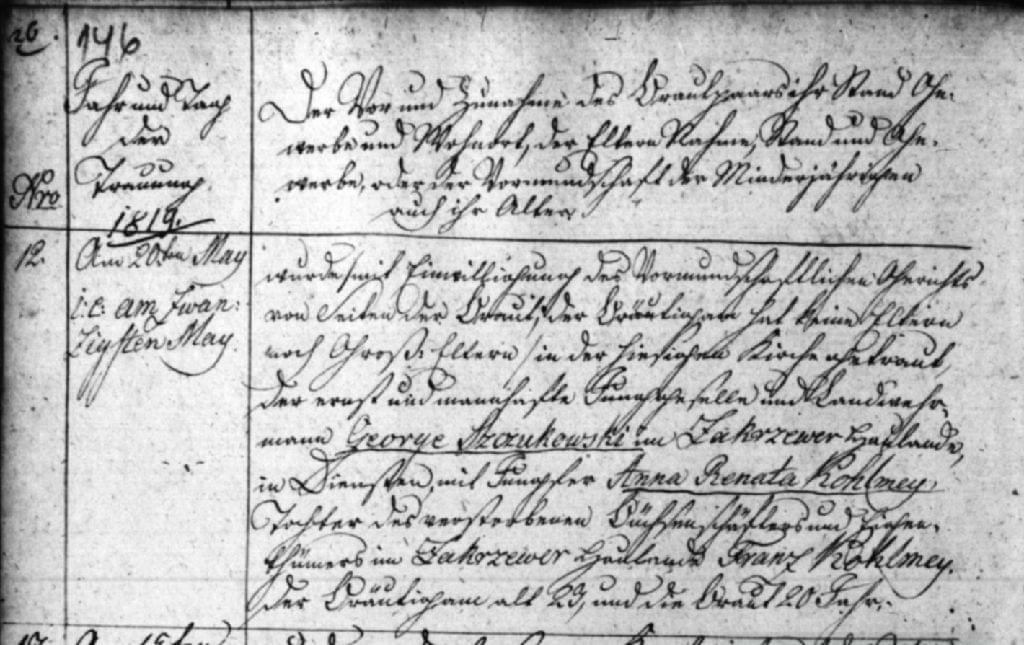 26.
146
Jahr und Tag
der
Trauung
1819.
Nro
Der Vor und Zunahme des Brautpaars ihr Stand Ge-
werbe und Wohnort, der Eltern Nahme, Stand und Ge-
werbe, oder der Vormundschaft der Minderjährigen
auch ihr Alter.
12.
Am 20ten May
i: e: am Zwan:
zigsten May.
wurde /mit Einwilligung des Vormundschaftlichen Gerichts
von Seiten der Braut, der Bräutigam hat keine Eltern
noch Groß-Eltern / in der hiesigen Kirche getraut,
der ernst und mannhafte Junggeselle und Landwehr-
mann George Szczukowski im Zakrzewer Hauland,
in Diensten, mit Jungfer Anna Renata Kohlmey,
Tochter des verstorbenen Büchsenschäfters und Eigen-
thümers im Zakrzewer Haulande Franz Kohlmey.
Der Bräutigam alt 23, und die Braut 20 Jahr.